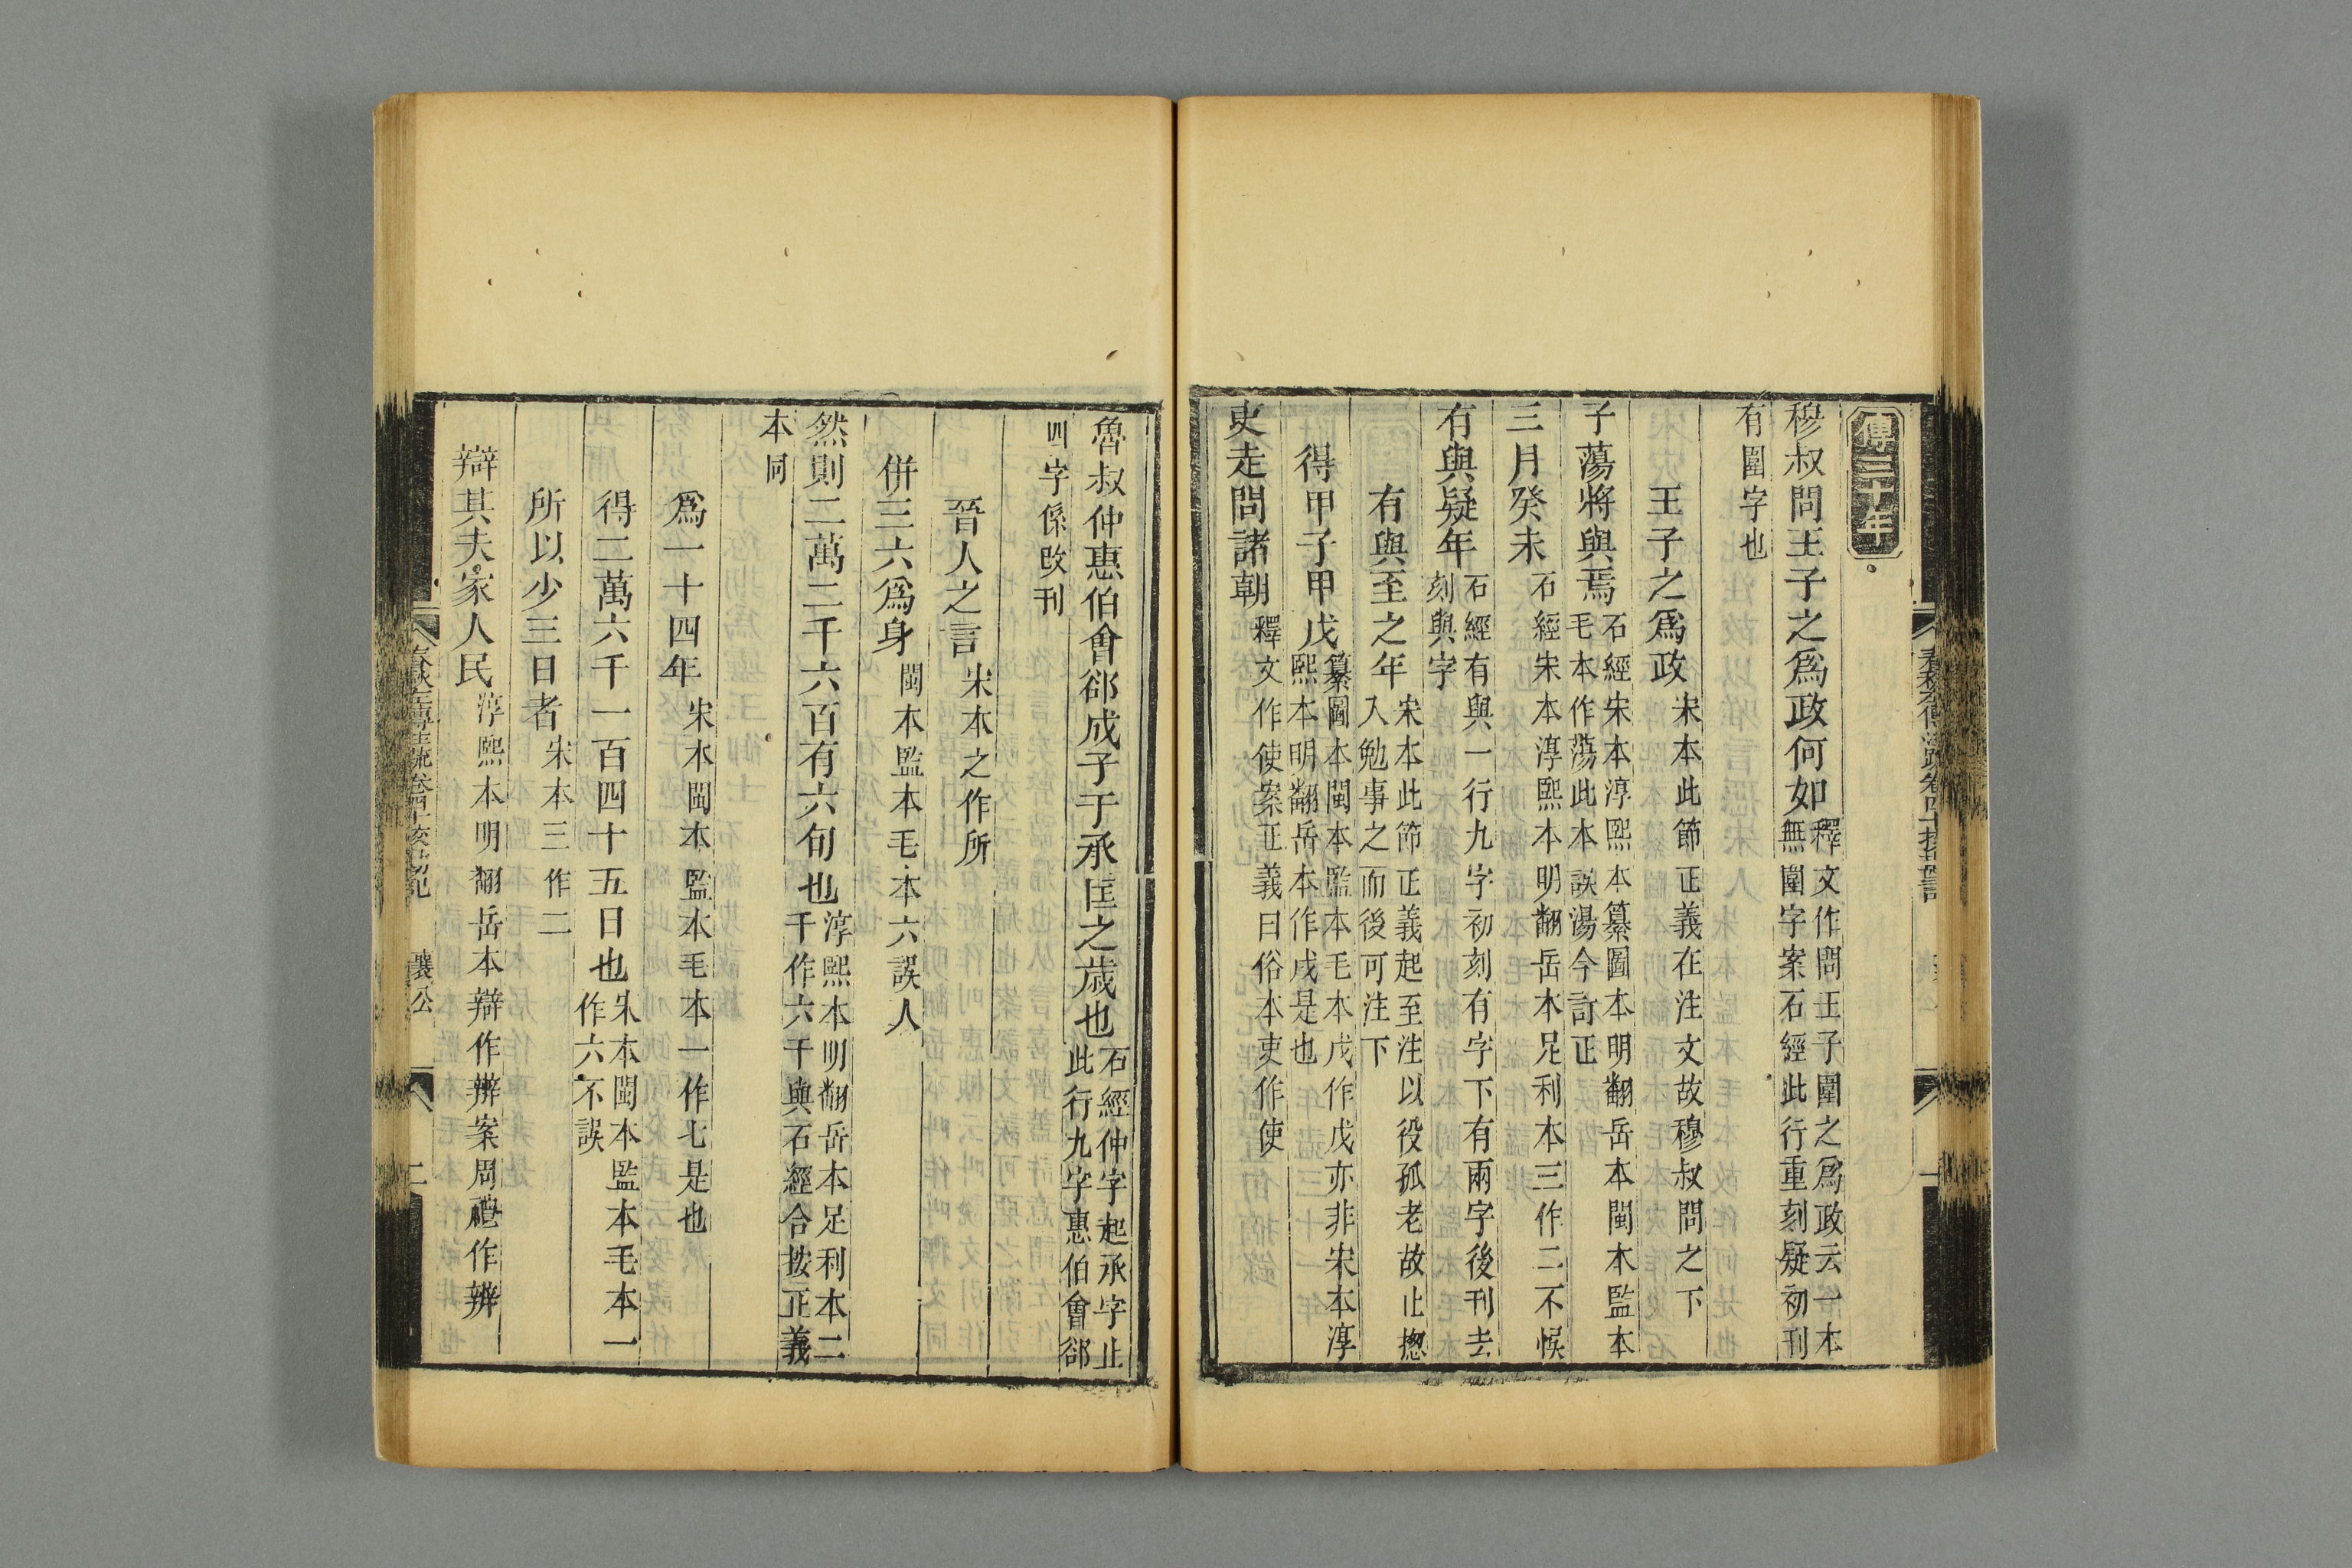 傳三十年
穆叔問王子之爲政何如釋文作問王子圍之爲政云一本
無圍字案石經此行重刻疑初刊
有圍字也
王子之爲政宋本此節正義在注文故穆叔問之下
子蕩將與焉石經宋本淳熙本纂圖本明翻岳本閩本監本
毛本作蕩此本誤湯今訂正
三月癸未石經宋本淳熙本明翻岳本足利本三作二不悞
有與疑年石經有與一行九字初刻有字下有兩字後刊去
刻與字
有與至之年宋本此節正義起至注以役孤老故止揔
入勉事之而後可注下
得甲子甲戌纂圖本閩本監本毛本戊作戌亦非宋本淳
熙本明翻岳本作戌是也
吏走問諸朝釋文作使案正義曰俗本吏作使
魯叔仲惠伯會郤成子于承匡之歲也石經仲字起承字止
此行九字惠伯會郤
四字係改刊
晉人之言宋本之作所
併三六爲身閩本監本毛本六誤人
然則二萬二千六百有六旬也淳熙本明翻岳本足利本二
千作六千與石經合按正義
本同
爲一十四年宋本閩本監本毛本一作七是也
得二萬六千一百四十五日也宋本閩本監本毛本一
作六不誤
所以少三日者宋本三作二
辯其夫家人民淳熙本明翻岳本辯作辨案周禮作辨
襄公
二